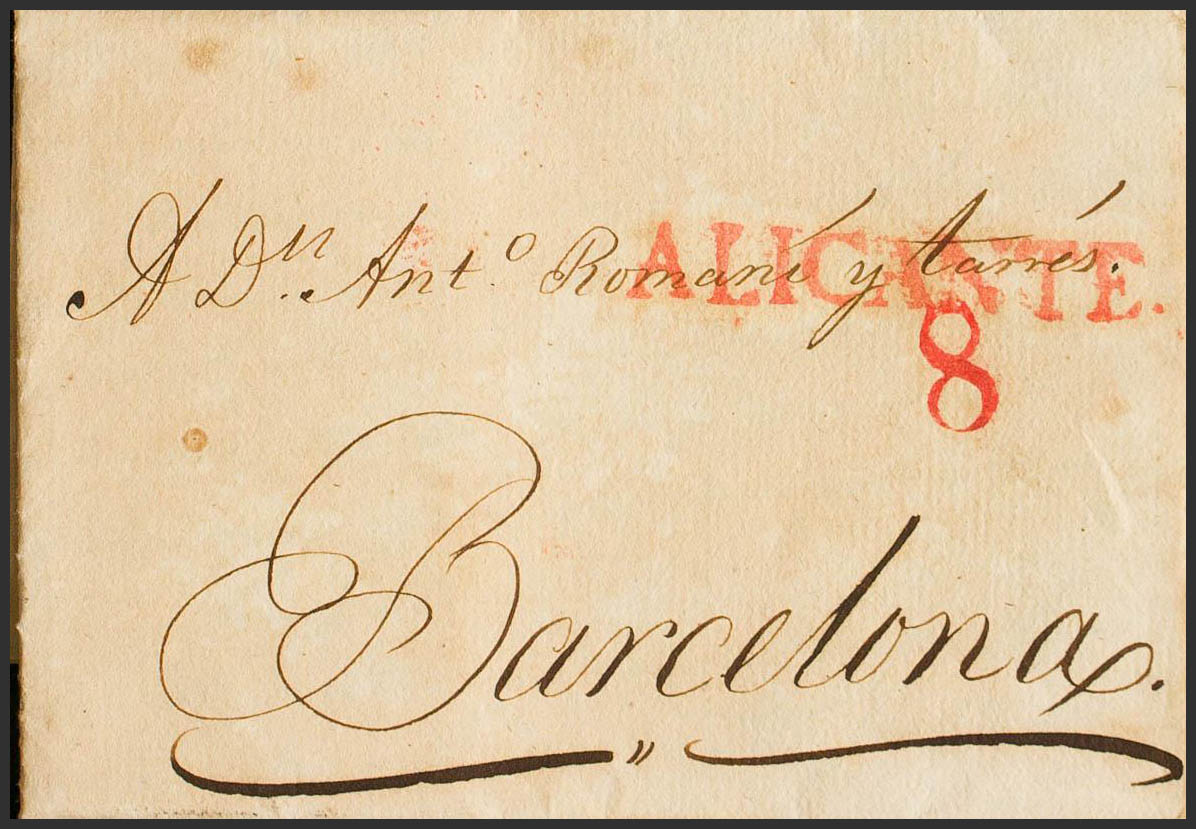 A Dⁿ. Antᵒ. Romaní y tarrés.
ALICANTE.
8
Barcelona.